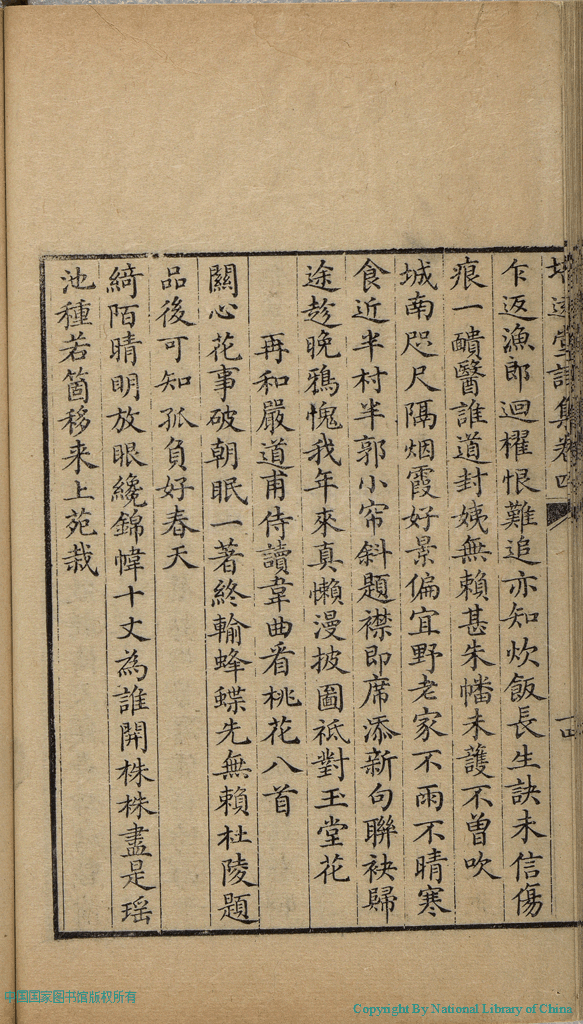 培遠堂詩集卷四
乍返漁郎迴櫂恨難追亦知炊飯長生訣未信傷
痕一靧醫誰道封姨無賴甚朱幡未護不曾吹
城南咫尺隔烟霞好景偏宜野老家不雨不晴寒
食近半村半郭小帘斜題襟即席添新句聯袂歸
途趁晚鴉愧我年來真懶漫披圖祗對玉堂花
再和嚴道甫侍讀韋曲看桃花八首
關心花事破朝眠一著終輸蜂蝶先無賴杜陵題
品後可知孤負好春天
綺陌晴明放眼纔錦幃十丈為誰開株株盡是瑶
池種若箇移来上苑栽
中国国家图书馆版权所有
Copyright By National Library of China